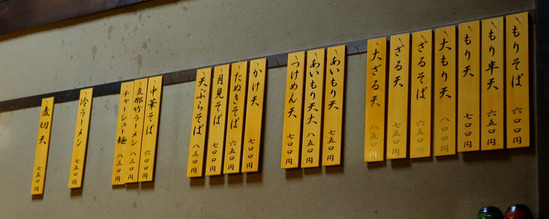 もりそば 六〇〇円
もり半天 六五〇円
もり天 七〇〇円
大もり天 八〇〇円
ざるそば 六五〇円
ざる天
大ざる天 八五〇円
あいもり天 七五〇円
あいもり天大 八五〇円
つけめん天 七〇〇円
かけ天 七〇〇円
たぬきそば 六五〇円
月見そば 七〇〇円
天ぷらそば 七五〇円
中華そば 六〇〇円
支那竹ラーメン 八五〇円
チャーシュー麺 八五〇円
冷ラーメン 七五〇円
湯切天 七五〇円